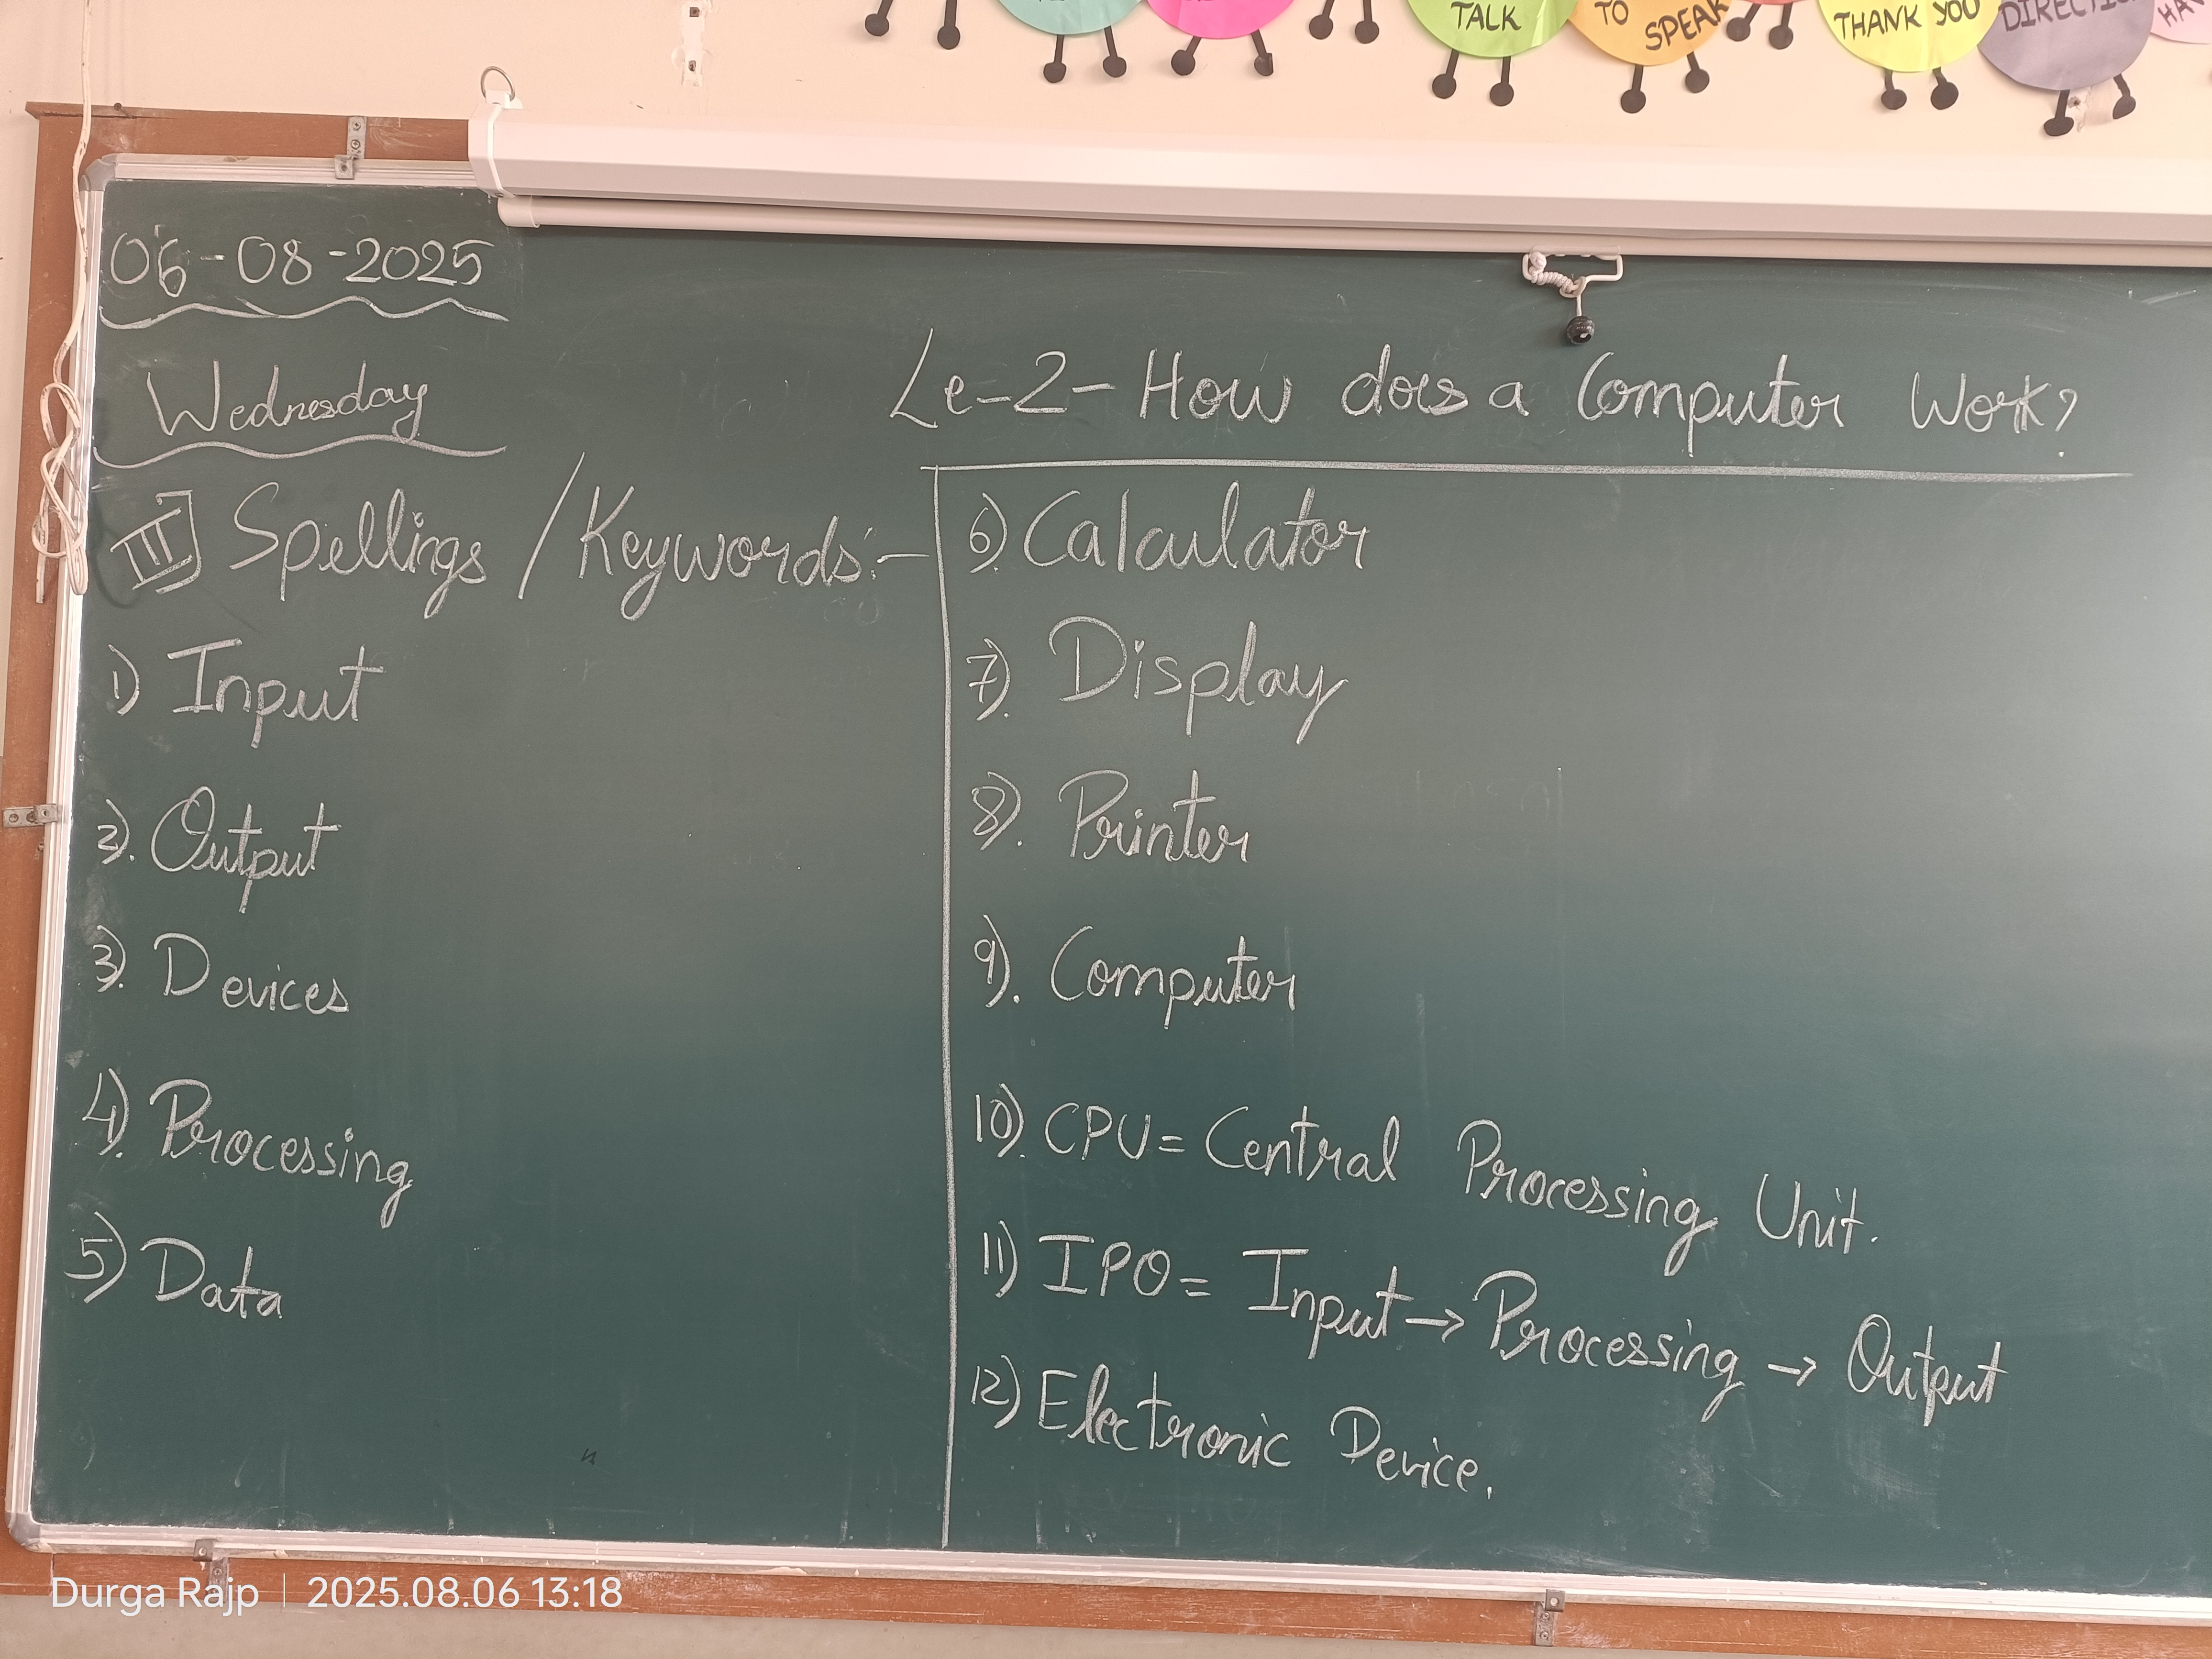 TALK
TO SPEAK
THANK YOU
06-08-2025
Wednesday
Le-2-How does a Computer Work?
III Spellings / Keywords:-
1) Input
2). Output
3). Devices
4). Processing
5) Data
6). Calculator
7). Display
8). Printer
9). Computer
10). CPU = Central Processing Unit.
11) IPO = Input → Processing → Output
12) Electronic Device.
Durga Rajp | 2025.08.06 13:18